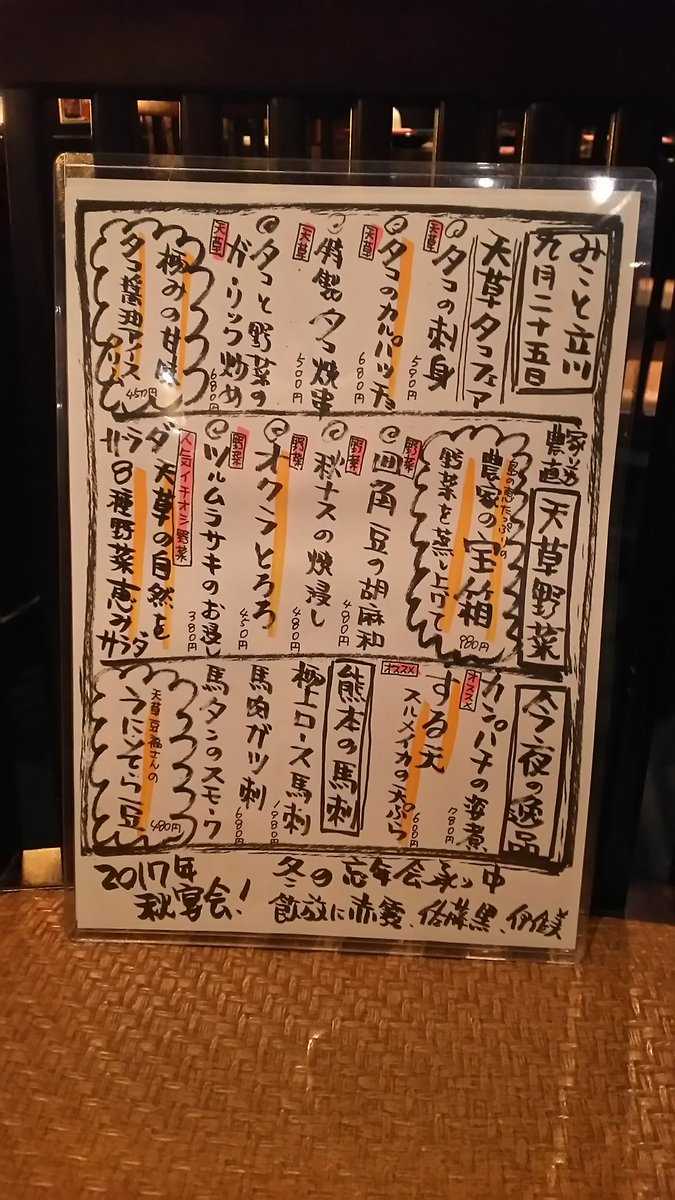 みこと立川
九月二十五日
天草タコフェア
天草
タコの刺身
590円
天草
タコのカルパッチョ
680円
天草
特製タコ焼串
500円
タコと野菜の
ガーリック炒め
680円
天草
極みの甘味
タコ醤油アイス
450円
農家直送
天草野菜
島の恵たっぷりの
農家の宝箱
野菜を蒸し上げて
980円
野菜
四角豆の胡麻和
480円
野菜
秋ナスの焼浸し
480円
野菜
オクラとろろ
450円
野菜
ツルムラサキのお浸し
380円
人気イチオシ野菜
サラダ
天草の自然を
8種野菜恵みサラダ
今夜の逸品
オススメ
カンパチの姿煮
780円
オススメ
する天
スルメイカの天ぷら
600円
熊本の馬刺
極上ロース馬刺
1980円
馬肉ガツ刺
680円
馬タンのスモーク
天草豆福さんの
うにくてら豆
480円
2017年
秋宴会!
冬の忘年会承り中
飲放に赤霧、佐藤黒、伊佐美